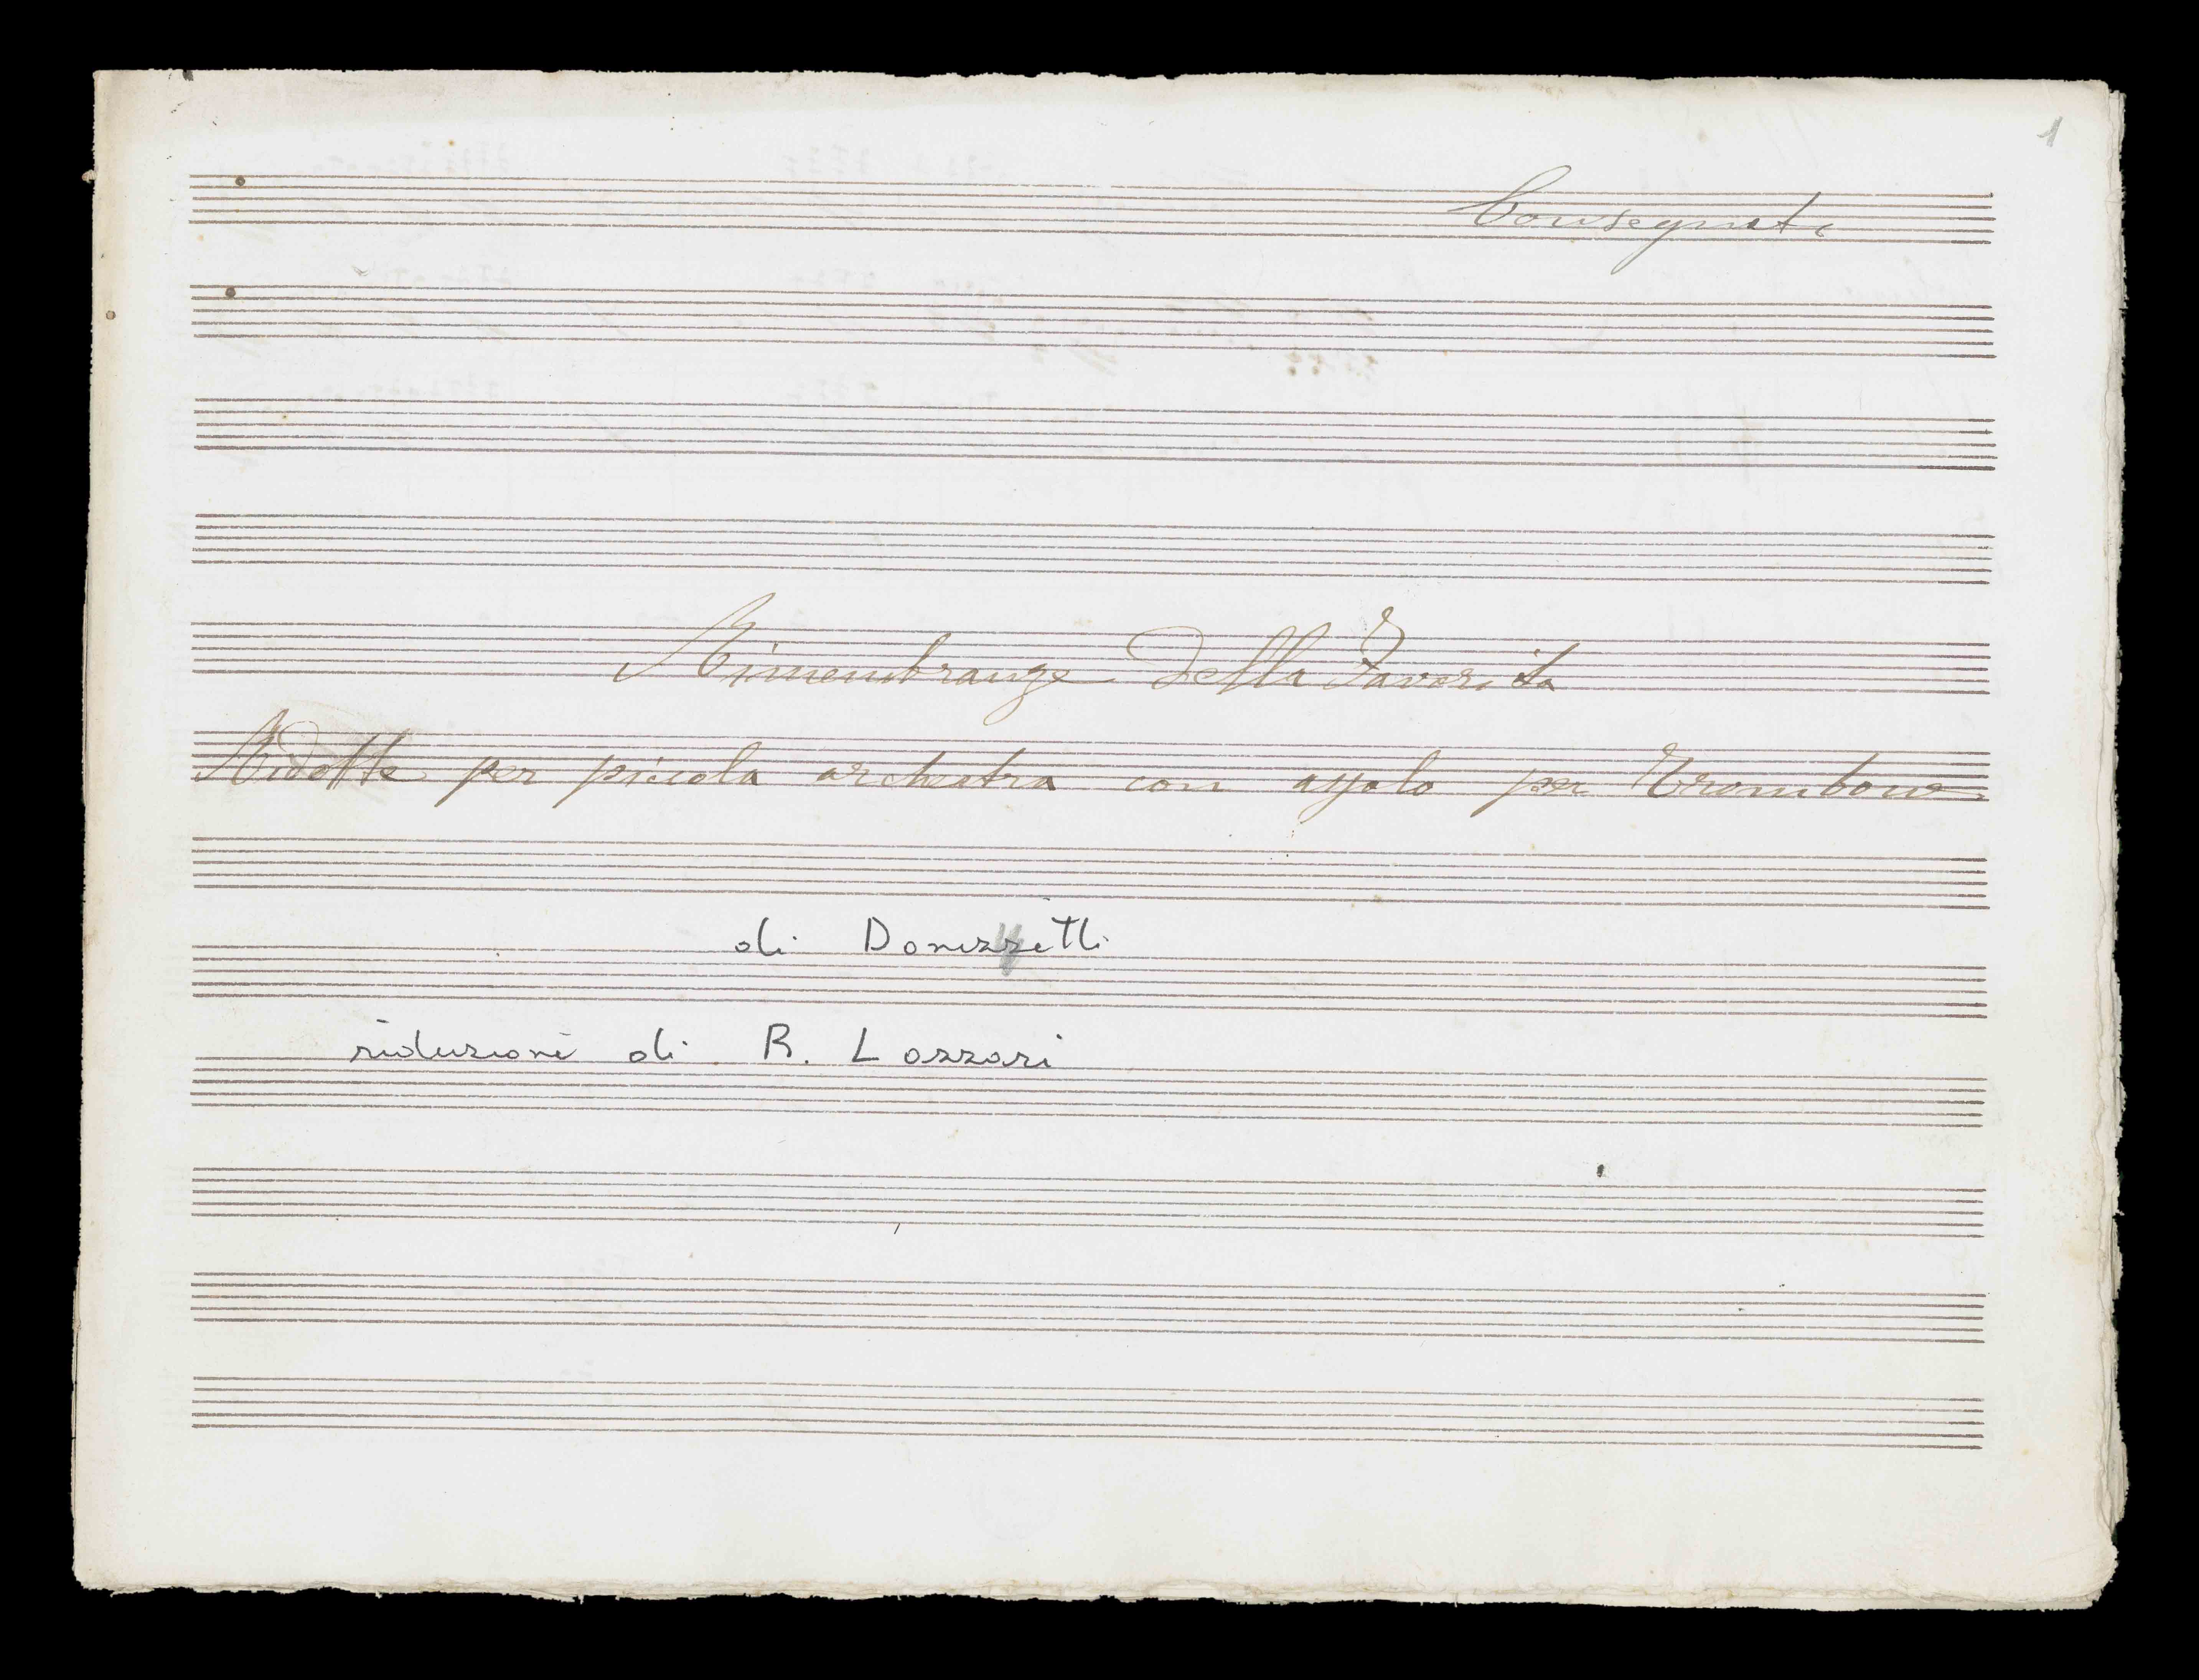 1
Consegnate
Rimembranze Della Favorita
Ridotte per piccola orchestra con assolo per Trombone
di Donizzetti
riduzione di R. Lazzari